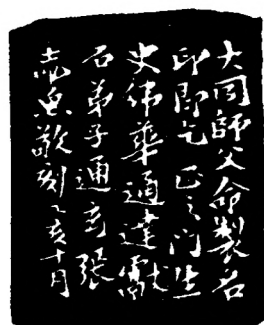 大同師父命製名
印即乞正之门生
史伟華通達獻
石弟子通玄張
志魚敬刻乙亥十月